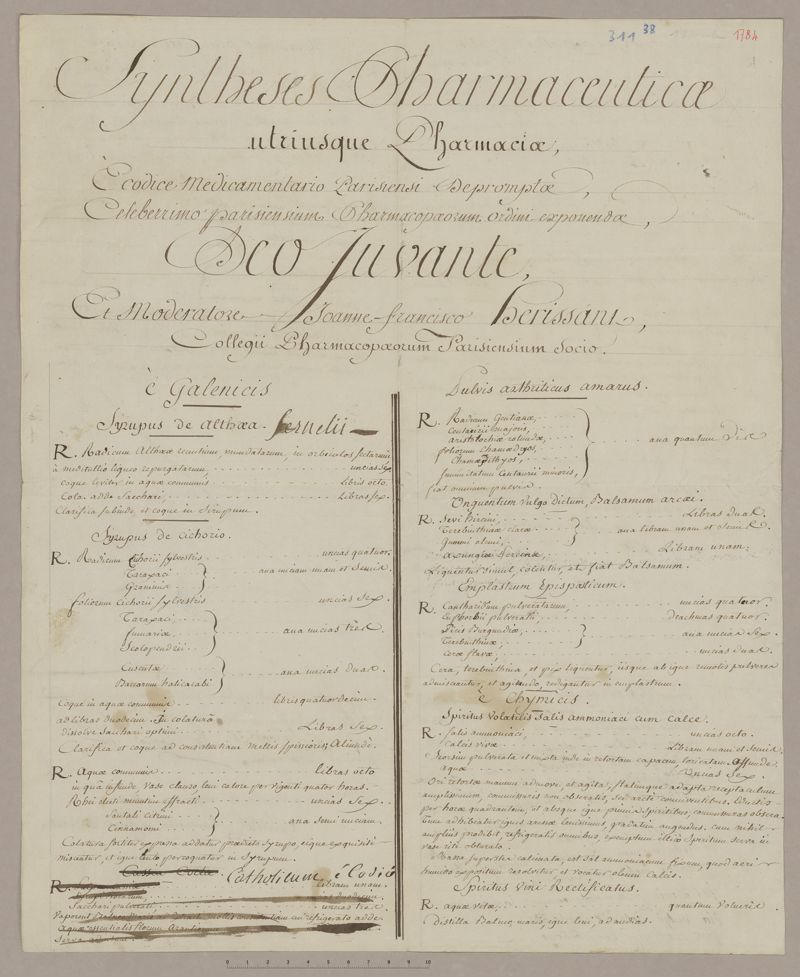 311 38 1784
Syntheses Pharmaceuticæ
utriusque Pharmaciæ,
E codice Medicamentario Parisiensi Depromptæ,
Celeberrimo parisiensium Pharmacopæorum ordini exponendæ,
Deo Juvante,
Et Moderatore Joanne-francisco herissant,
Collegii Pharmacopæorum Parisiensium Socio.
è Galenicis
Syrupus de althæa. fernelii
R. Radicum Althææ recentium, mundatarum, in orbiculos sectarum
à meditullio ligneo repurgatarum, uncias Sex
coque leviter in aquæ communis Libris octo.
Cola. adde Sacchari, Libras Sex.
Clarifica subinde, et coque in Syrupum.
Syrupus de cichorio.
R. Radicum Cichorii Sylvestris uncias quatuor.
Taraxaci
Graminis } ana unciam unam et Semis
foliorum Cichorii Sylvestris uncias Sex.
Taraxaci,
fumariæ
Scolopendrii } ana uncias tres.
Cuscutæ
Baccarum halicacabi } ana uncias duas.
Coque in aquæ communis libris quatuordecim
ad libras duodecim. In colatura
dissolve Sacchari optimi Libras Sex.
Clarifica et coque ad consistentiam mellis spissioris, aliunde.
R. Aquæ communis libras octo
in qua infunde, vase clauso leni calore per viginti quatuor horas.
Rhei electi minutim effracti uncias Sex.
Santali citrini
Cinnamomi } ana Semi unciam.
Colatura fortiter expressa addatur prædicto Syrupo, eique exquisitè
misceatur, et igne lento percoquatur in Syrupum.
Catholicum è Codice
Libram unam.
Sacchari pulverati uncias tres
Pulvis arthriticus amarus.
R. Radicum Gentianæ,
Centaurii majoris,
aristolochiæ rotundæ,
foliorum Chamædryos,
Chamæpithyos,
Summitatum Centaurii minoris, } ana quantum vis
fiat omnium pulvis
Unguentum Vulgo Dictum, Balsamum arcæi.
R. Sevi hircini, Libras duas.
Terebinthinæ claræ
Gummi elemi, } ana libram unam et Semis.
axungiæ Porcinæ, Libram unam.
Liquentur simul, colentur, et fiat Balsamum.
Emplastrum Epispasticum.
R. Cantharidum pulveratarum, uncias quatuor.
Euphorbii pulverati, drachmas quatuor.
Picis Burgundicæ,
Terebinthinæ, } ana uncias Sex.
Ceræ flavæ, uncias duas.
Cera, terebinthina et pix liquentur, iisque ab igne remotis pulveres
admisceantur, et agitando, redigantur in emplastrum.
è Chymicis.
Spiritus Volatilis Salis ammoniaci cum calce.
R. Salis ammoniaci, uncias octo.
Calcis vivæ Libram unam et Semis.
Seorsim pulverata et mixta inde in retortam capacem, loricatam. Affunde,
aquæ uncias Sex.
Ori retortæ manum admove, et agita, statimque adapta receptaculum
amplissimum, commissuris non obseratis, sed arctè conniventibus. Educto
per horæ quadrantem, et absque igne primis Spiritibus, commissuras obsera
Tum adhibeatur ignis arenæ lenissimus, gradatim augendus. cum nihil
amplius prodibit, refrigeratis omnibus, exemptum illico Spiritum serva in
vase ritè obturato.
Massa superstes calcinata, est Sal ammoniacum fixum, quod aeri
humido expositum resolvitur et vocatur oleum calcis.
Spiritus Vini Rectificatus.
R. aquæ vitæ, quantum Volueris
distilla Balneo maris, igne leni, ad audias.
0 1 2 3 4 5 6 7 8 9 10